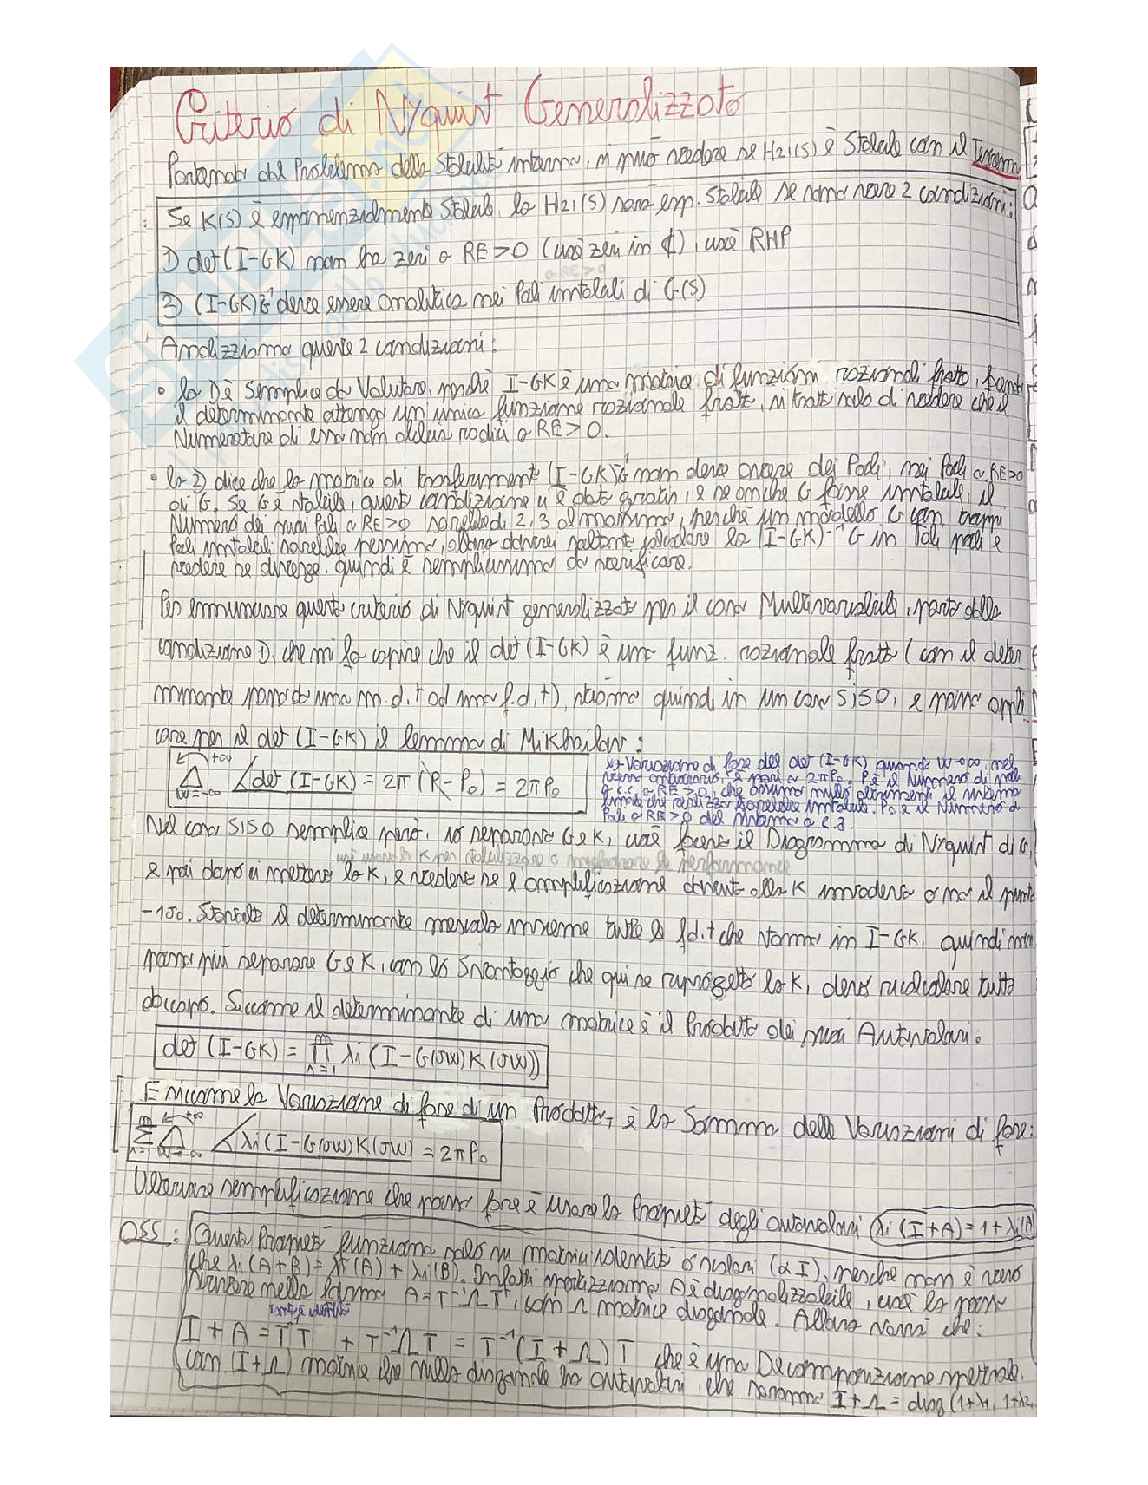 Criterio di Nyquist Generalizzato
Partendo dal Problema della Stabilità interna, si può vedere se H21(s) è Stabile con il Teorema
Se K(s) è esponenzialmente Stabile, la H21(s) sarà esp. stabile se sono vere 2 condizioni:
1) det(I-GK) non ha zeri a RE>0 (cioè zeri in ₵), cioè RHP
2) (I-GK)⁻¹G deve essere analitica nei Poli instabili di G(s)
Analizziamo queste 2 condizioni:
• la 1) è Semplice da Valutare, poiché I-GK è una matrice di funzioni razionali fratte, facendo
il determinante ottengo un'unica funzione razionale fratta, si tratta solo di vedere che il
Numeratore di essa non abbia radici a RE>0.
• la 2) dice che la matrice di trasferimento (I-GK)⁻¹G non deve avere dei Poli nei Poli a RE>0
di G. Se G è stabile, questa condizione ci è data gratis, e se anche G fosse instabile, il
Numero dei suoi Poli a RE>0 sarebbe di 2, 3 al massimo, perché un modello G con troppi
Poli instabili sarebbe pessimo, allora dovrei soltanto calcolare la (I-GK)⁻¹G in tali poli e
vedere se diverge, quindi è semplicissima da verificare.
Per enunciare questo criterio di Nyquist generalizzato per il caso Multivariabile, parto dalla
condizione 1) che mi fa capire che il det(I-GK) è una funz. razionale fratta (con il deter
minante passo da una m.d.t ad una f.d.t), ritorno quindi in un caso SISO, e posso appli
care per il det(I-GK) il lemma di Mikhailov:
Δ ∠det(I-GK) = 2π(P-P₀) = 2πP₀
ω=-∞ +∞
Nel caso SISO semplice però, io separavo G e K, cioè facevo il Diagramma di Nyquist di G,
e poi dopo ci mettevo la K, e vedere se l'amplificazione dovuta alla K includeva o no il punto
-1+j0. Stavolta il determinante mescola insieme tutte le f.d.t che stanno in I-GK, quindi non
posso più separare G e K, con lo Svantaggio che qui se riprogetto la K, devo ricalcolare tutto
daccapo. Siccome il determinante di una matrice è il Prodotto dei suoi Autovalori:
det(I-GK) = ∏ λi(I-G(jω)K(jω))
E siccome la Variazione di fase di un Prodotto, è la Somma delle Variazioni di fase:
Σ Δ ∠λi(I-G(jω)K(jω)) = 2πP₀
Ulteriore semplificazione che posso fare è usare la Proprietà degli autovalori λi(I+A) = 1+λi(A)
OSS: Questa Proprietà funziona solo su matrici identità o scalari (αI), perché non è vero
che λi(A+B) = λi(A) + λi(B). Infatti ipotizziamo A è diagonalizzabile, cioè la posso
scrivere nella forma A = T⁻¹ΩT, con Ω matrice diagonale. Allora varrà che:
I + A = T⁻¹T + T⁻¹ΩT = T⁻¹(I+Ω)T che è una Decomposizione spettrale,
con (I+Ω) matrice che sulla diagonale ha autovalori, che saranno I+Ω = diag(1+λ1, 1+λ2